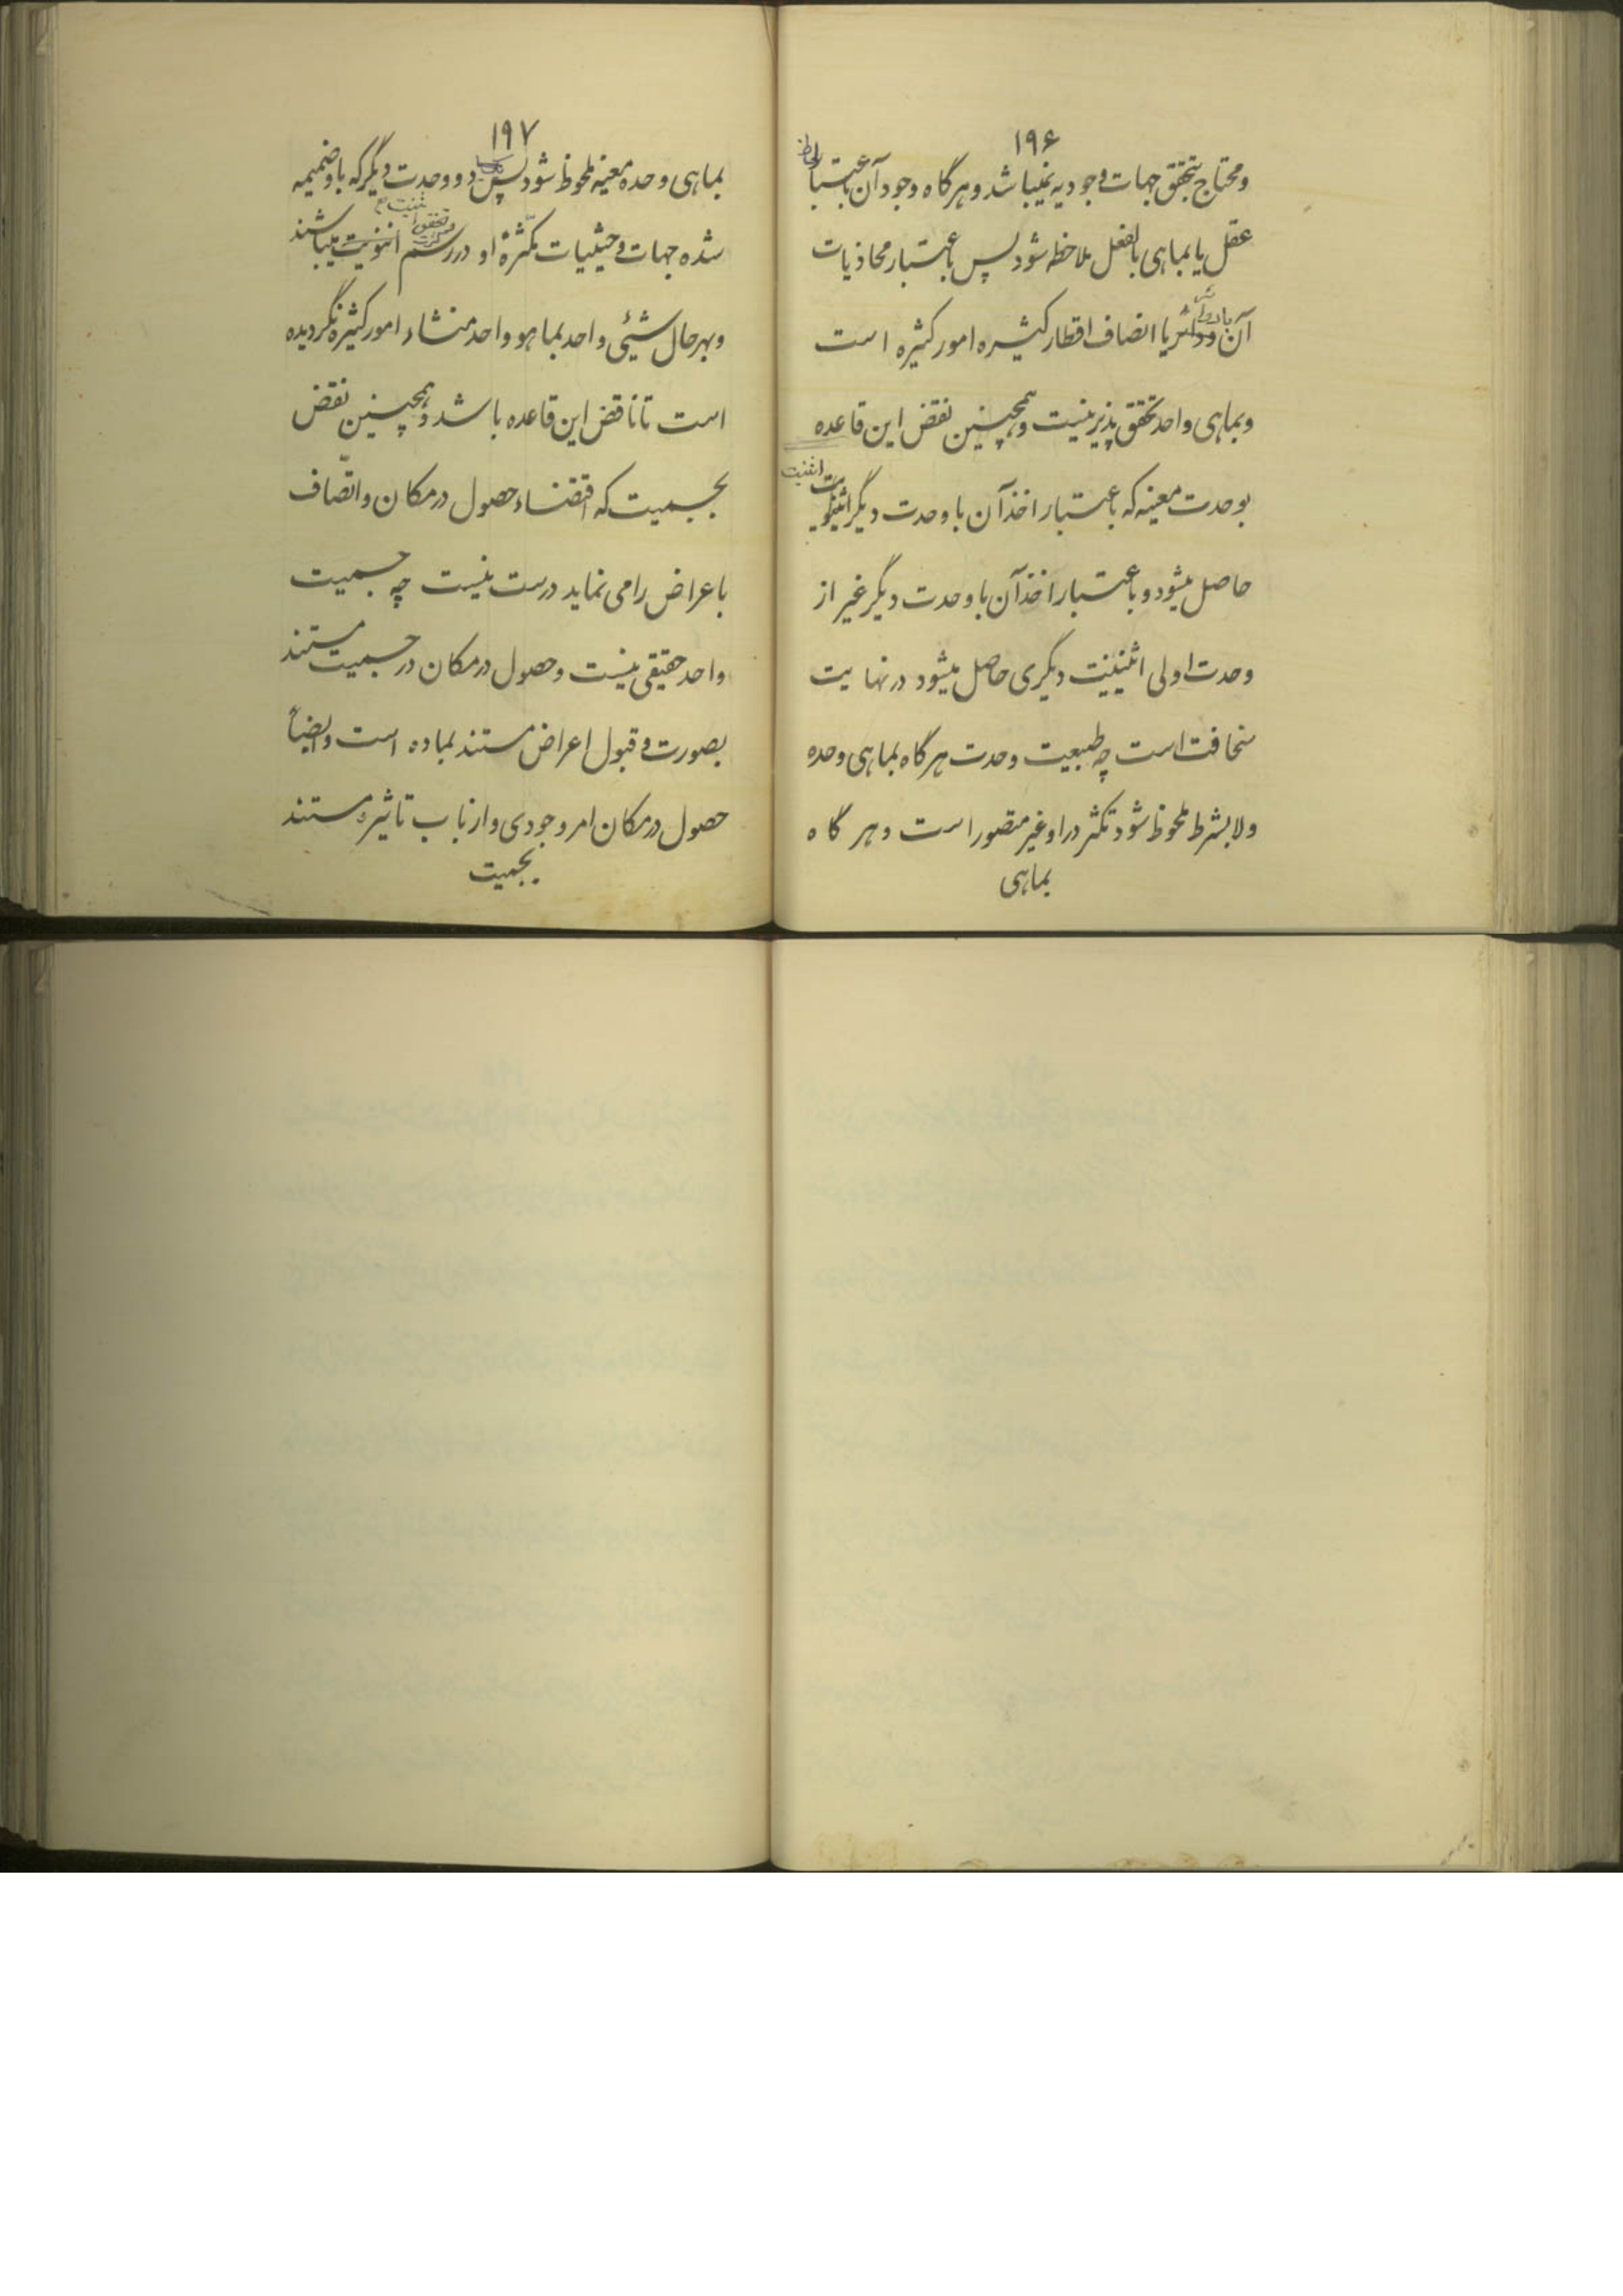 ۱۹۶
و محتاج بتحقق جهات وجودیه نمیباشد و هرگاه وجود آن باعتبار لحاظ
عقل یا بماهی بالفعل ملاحظه شود پس باعتبار محاذیات
آن با دوائر یا انصاف اقطار کثیره امور کثیره است
و بماهی واحد تحقق پذیر نیست و همچنین نقض این قاعده
بوحدت معینه که باعتبار اخذ آن با وحدت دیگر اثنینیت
حاصل میشود و باعتبار اخذ آن با وحدت دیگر غیر از
وحدت اولی اثنینیت دیگری حاصل میشود در نهایت
سخافت است چه طبیعت وحدت هرگاه بماهی وحده
و لابشرط ملحوظ شود تکثر در او غیر متصور است و هر گاه
بماهی
۱۹۷
بماهی وحده معینه ملحوظ شود پس دو وحدت دیگر که باو ضمیمه
شده جهات و حیثیات مکثّرة او در رسم اثنویت میباشند
و بهرحال شیئی واحد بماهو واحد منشاء امور کثیره نگردیده
است تا ناقض این قاعده باشد و همچنین نقض
بجسمیت که اقتضاء حصول در مکان و اتّصاف
باعراض را می نماید درست نیست چه جسمیت
واحد حقیقی نیست و حصول در مکان در جسمیت مستند
بصورت و قبول اعراض مستند بماده است و ایضاً
حصول در مکان امر وجودی و از باب تاثیر و مستند
بجسمیت